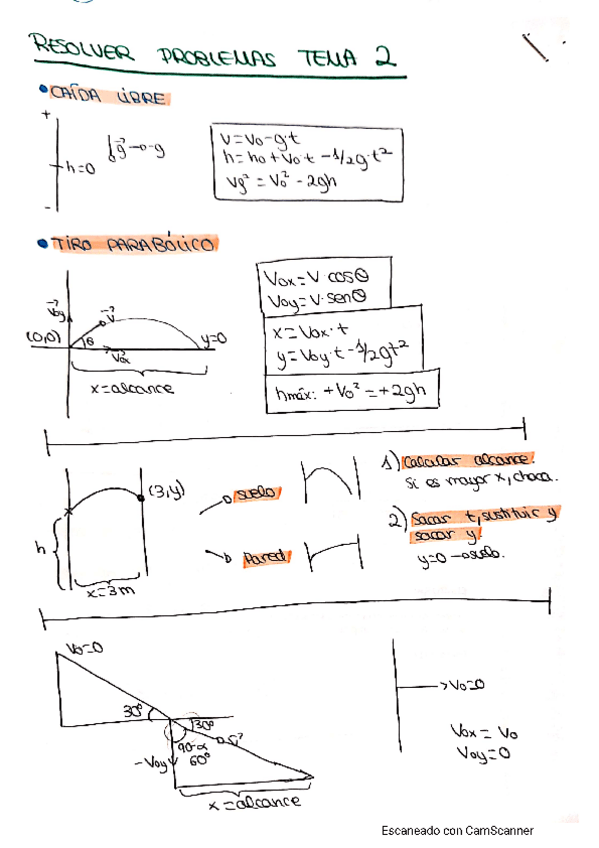 RESOLVER PROBLEMAS TEMA 2
• CAÍDA LIBRE
+
h=0
g⃗ → -g
-
V=Vo-g·t
h=ho+Vo·t-1/2g·t²
Vg²=Vo²-2gh
• TIRO PARABÓLICO
Voy
V
(0,0)
θ
Vox
y=0
x=alcance
Vox=V·cosθ
Voy=V·senθ
x=Vox·t
y=Voy·t-1/2gt²
hmáx: +Vo²=+2gh
(3,y)
h
x=3m
suelo
Pared
1) Calcular alcance.
Si es mayor x, choca.
2) Sacar t, sustituir y
sacar y.
y=0→suelo.
Vo=0
30º
30º
V
90-α
60º
-Voy
x=alcance
Vo=0
Vox=Vo
Voy=0
Escaneado con CamScanner